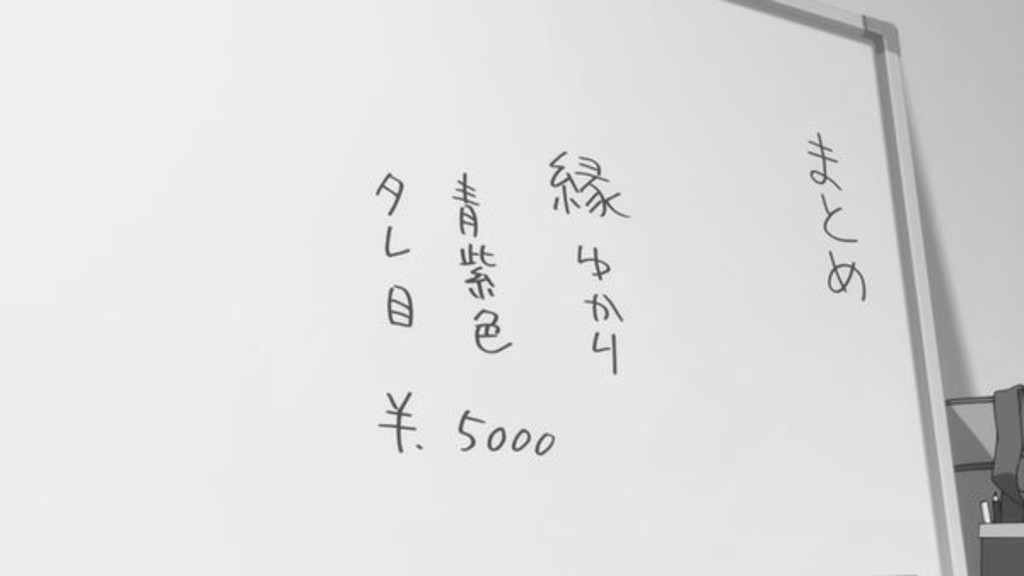 まとめ
縁 ゆかり
青紫色
タレ目
¥. 5000